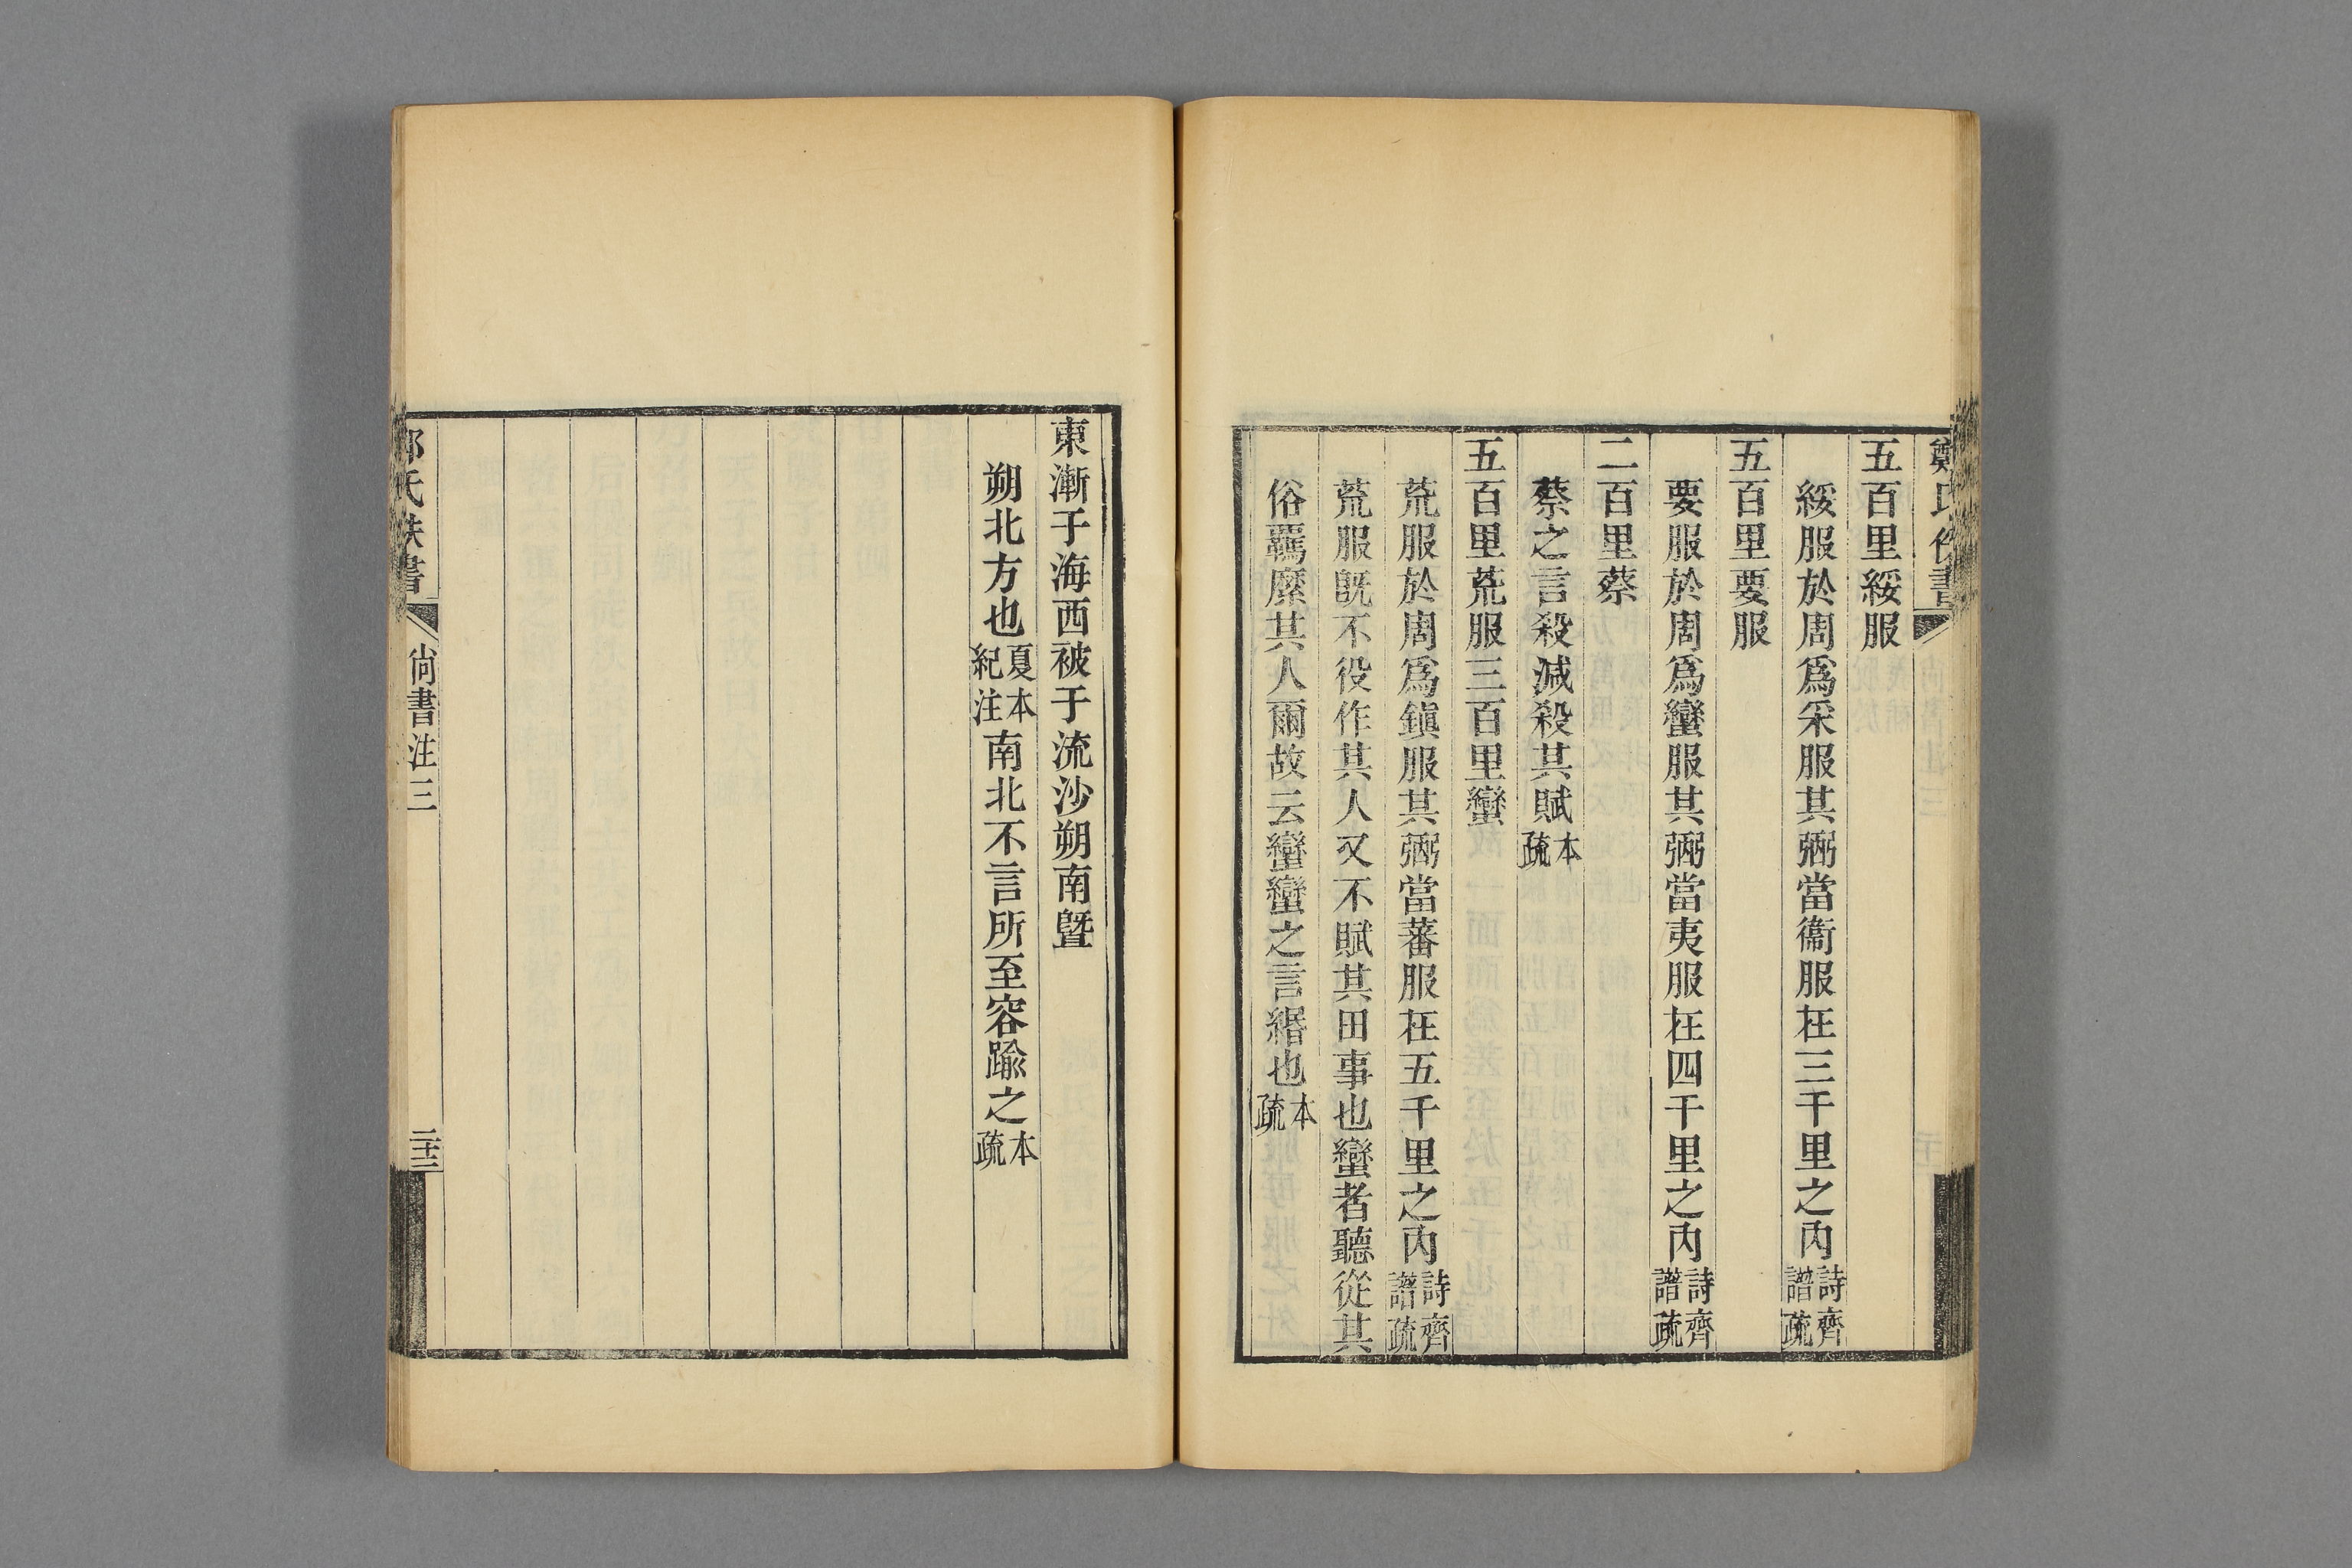 五百里綏服
綏服於周爲采服其弼當衞服在三千里之內詩齊譜疏
五百里要服
要服於周爲蠻服其弼當夷服在四千里之內詩齊譜疏
二百里蔡
蔡之言殺減殺其賦本疏
五百里荒服三百里蠻
荒服於周爲鎭服其弼當蕃服在五千里之內詩齊譜疏
荒服旣不役作其人又不賦其田事也蠻者聽從其
俗羈縻其人爾故云蠻蠻之言緡也本疏
東漸于海西被于流沙朔南曁
朔北方也夏本紀注南北不言所至容踰之本疏
氏佚書
尙書注三
二十二